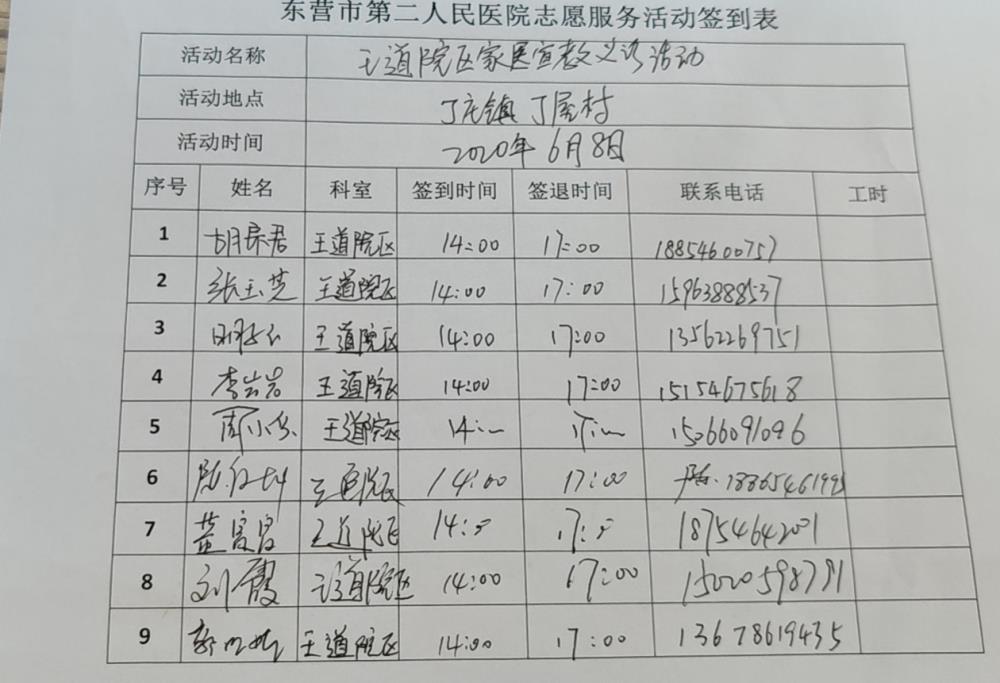 东营市第二人民医院志愿服务活动签到表
活动名称 王道院区家医宣教义诊活动
活动地点 丁庄镇丁屋村
活动时间 2020年6月8日
序号 姓名 科室 签到时间 签退时间 联系电话 工时
1 胡宗君 王道院区 14:00 17:00 18854600757
2 张玉芝 王道院区 14:00 17:00 15963888537
3 王道院区 14:00 17:00 13562269751
4 李岩岩 王道院区 14:00 17:00 15154675618
5 周小 王道院区 14: 17: 15066091096
6 陈 王道院区 14:00 17:00
7 董 王道院区 14: 17: 18754642001
8 刘霞 王道院区 14:00 17:00
9 郭 王道院区 14:00 17:00 13678619435